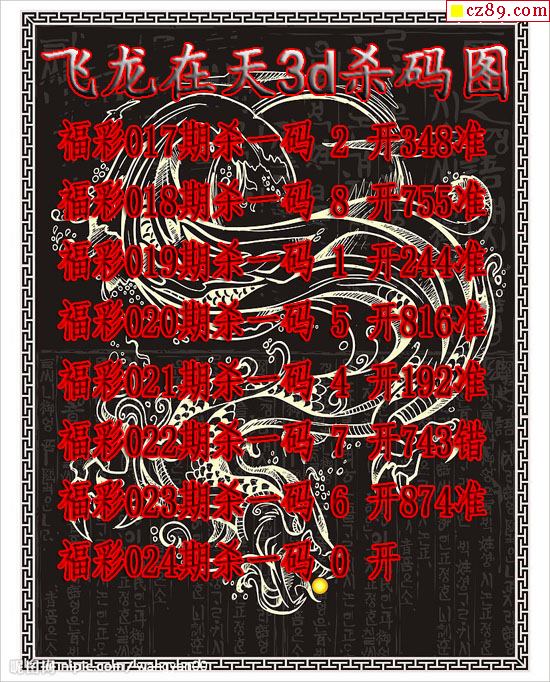 cz89.com
飞龙在天3d杀码图
福彩017期杀一码 2 开348准
福彩018期杀一码 8 开755准
福彩019期杀一码 1 开244准
福彩020期杀一码 5 开816准
福彩021期杀一码 4 开192准
福彩022期杀一码 7 开743错
福彩023期杀一码 6 开874准
福彩024期杀一码 0 开